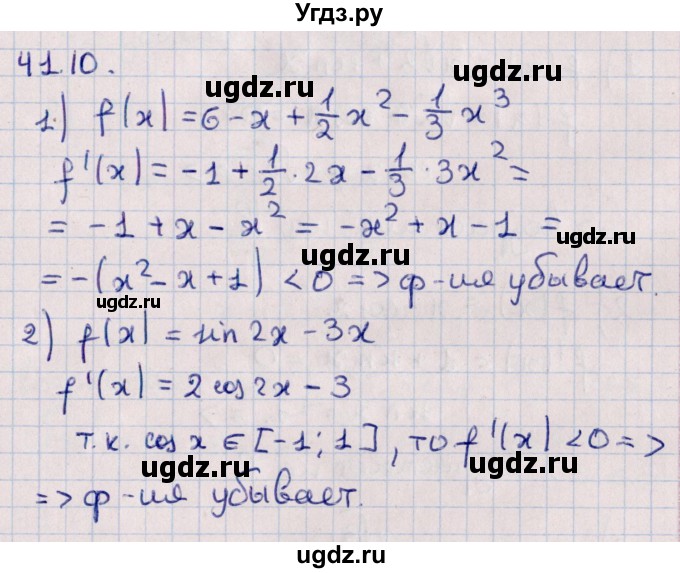 Угдз.ру
41.10.
ugdz.ru ugdz.ru
1.) f(x) = 6 - x + 1/2 x² - 1/3 x³
f'(x) = -1 + 1/2 · 2x - 1/3 · 3x² =
ugdz.ru
= -1 + x - x² = -x² + x - 1 =
ugdz.ru
= -(x² - x + 1) < 0 => ф-ия убывает.
ugdz.ru
2) f(x) = sin 2x - 3x
ugdz.ru
f'(x) = 2 cos 2x - 3
ugdz.ru
т.к. cos x ∈ [-1; 1], то f'(x) < 0 =>
ugdz.ru ugdz.ru
=> ф-ия убывает.
ugdz.ru
ugdz.ru